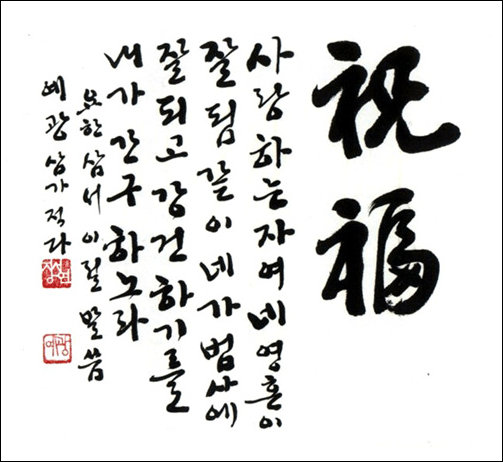 祝福
사랑하는자여네영혼이
잘됨같이네가범사에
잘되고강건하기를
내가간구하노라
요한삼서이절말씀
예광삼가적다